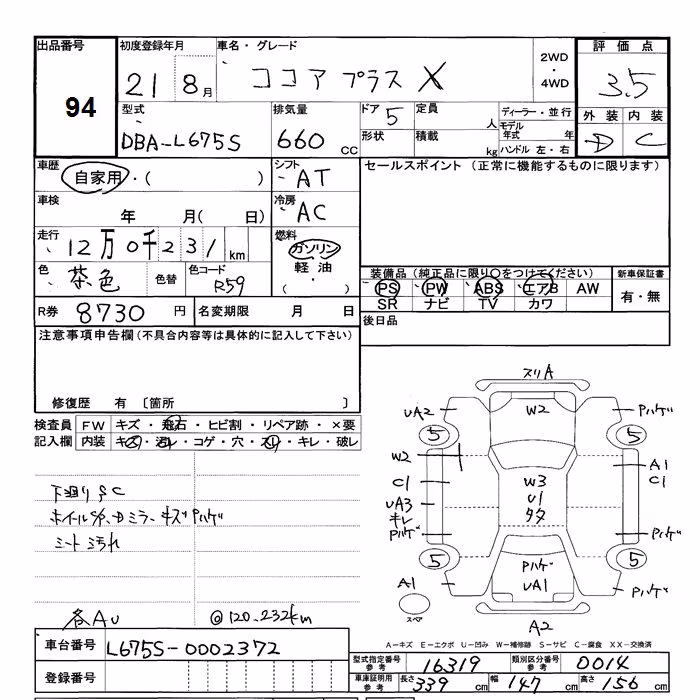 出品番号 初度登録年月 車名・グレード 2WD・4WD 評価点
94 21 8月 ココア プラス X 3.5
型式 排気量 ドア 5 定員 人 ディーラー・並行 外装 内装
DBA-L675S 660 CC 形状 積載 kg モデル年式 年 ハンドル 左・右 D C
車歴 自家用・( ) シフト AT セールスポイント (正常に機能するものに限ります)
車検 年 月( 日) 冷房 AC
走行 12万0千231 km 燃料 ガソリン 軽油・( )
色 茶色 色替 色コード R59 装備品 (純正品に限り○をつけてください) 新車保証書
PS PW ABS エアB AW 有・無
SR ナビ TV カワ
R券 8730 円 名変期限 月 日 後日品
注意事項申告欄 (不具合内容等は具体的に記入して下さい)
修復歴 有 〔箇所 〕
検査員 FW キズ・飛石・ヒビ割・リペア跡・×要
記入欄 内装 キズ・汚レ・コゲ・穴・スレ・キレ・破レ
下廻りSC
ホイールS
ミラーキズPハゲ
シート汚れ
各AU @120.232km
スリA
UA2 W2 Pハゲ
5 5
W2 A1
C1 W3 C1
UA3 U1
キレ タタ
Pハゲ Pハゲ
5 Pハゲ 5
A1 UA1 Pハゲ
スペア A2
A-キズ E-エクボ U-凹み W-補修跡 S-サビ C-腐食 XX-交換済
車台番号 L675S-0002372
登録番号
型式指定番号 参考 16319 類別区分番号 参考 0014
車庫証明用 参考 長さ 339 cm 幅 147 cm 高さ 156 cm